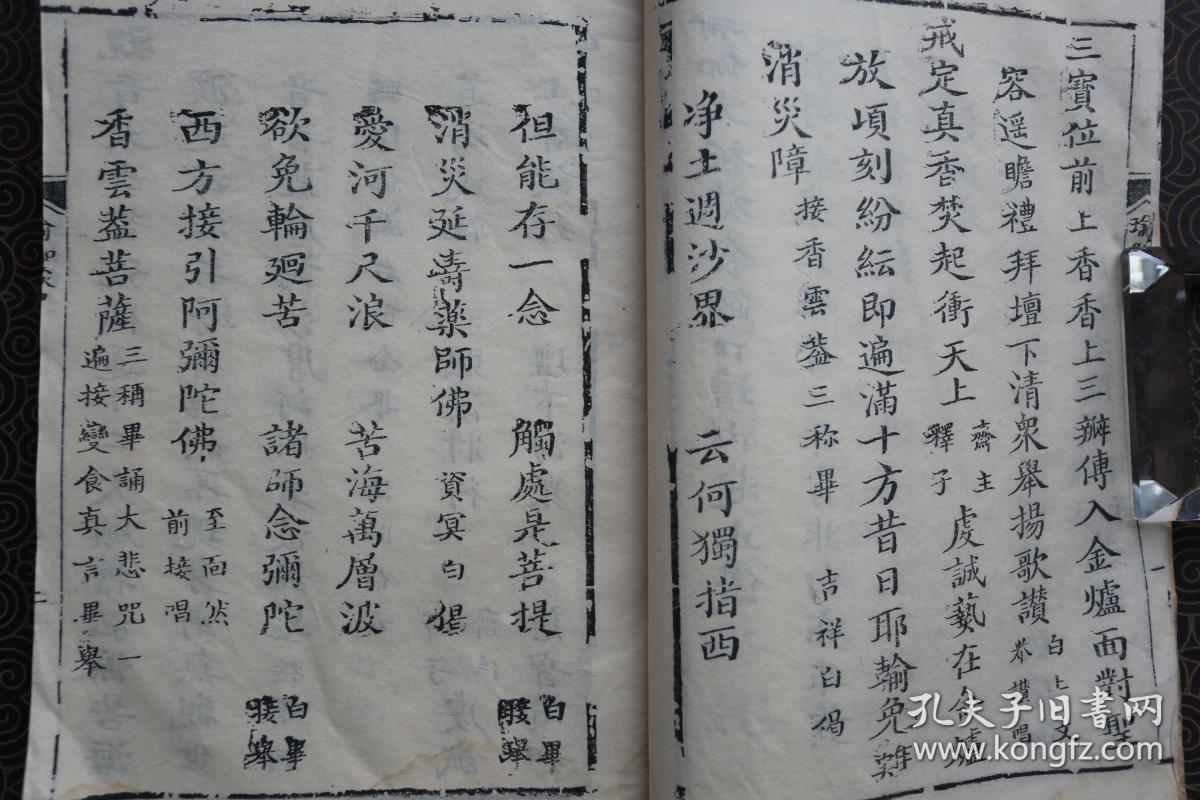 三寳位前上香香上三瓣傳入金爐面對聖
容遥瞻禮拜壇下清衆舉揚歌讃白上文恭讃唱
戒定真香焚起衝天上齋主釋子虔誠爇在金爐
放頃刻紛紜即遍滿十方昔日耶輸免難
消災障接香雲葢三称畢吉祥白偈
净土週沙界 云何獨指西
但能存一念 觸處是菩提白畢接舉
消災延壽藥師佛資冥白偈
愛河千尺浪 苦海萬層波
欲免輪廻苦 諸師念彌陀白畢接舉
西方接引阿彌陀佛至面然前接唱
香雲葢菩薩三稱畢誦大悲咒一遍接變食真言畢舉
孔夫子旧書网
www.kongfz.com